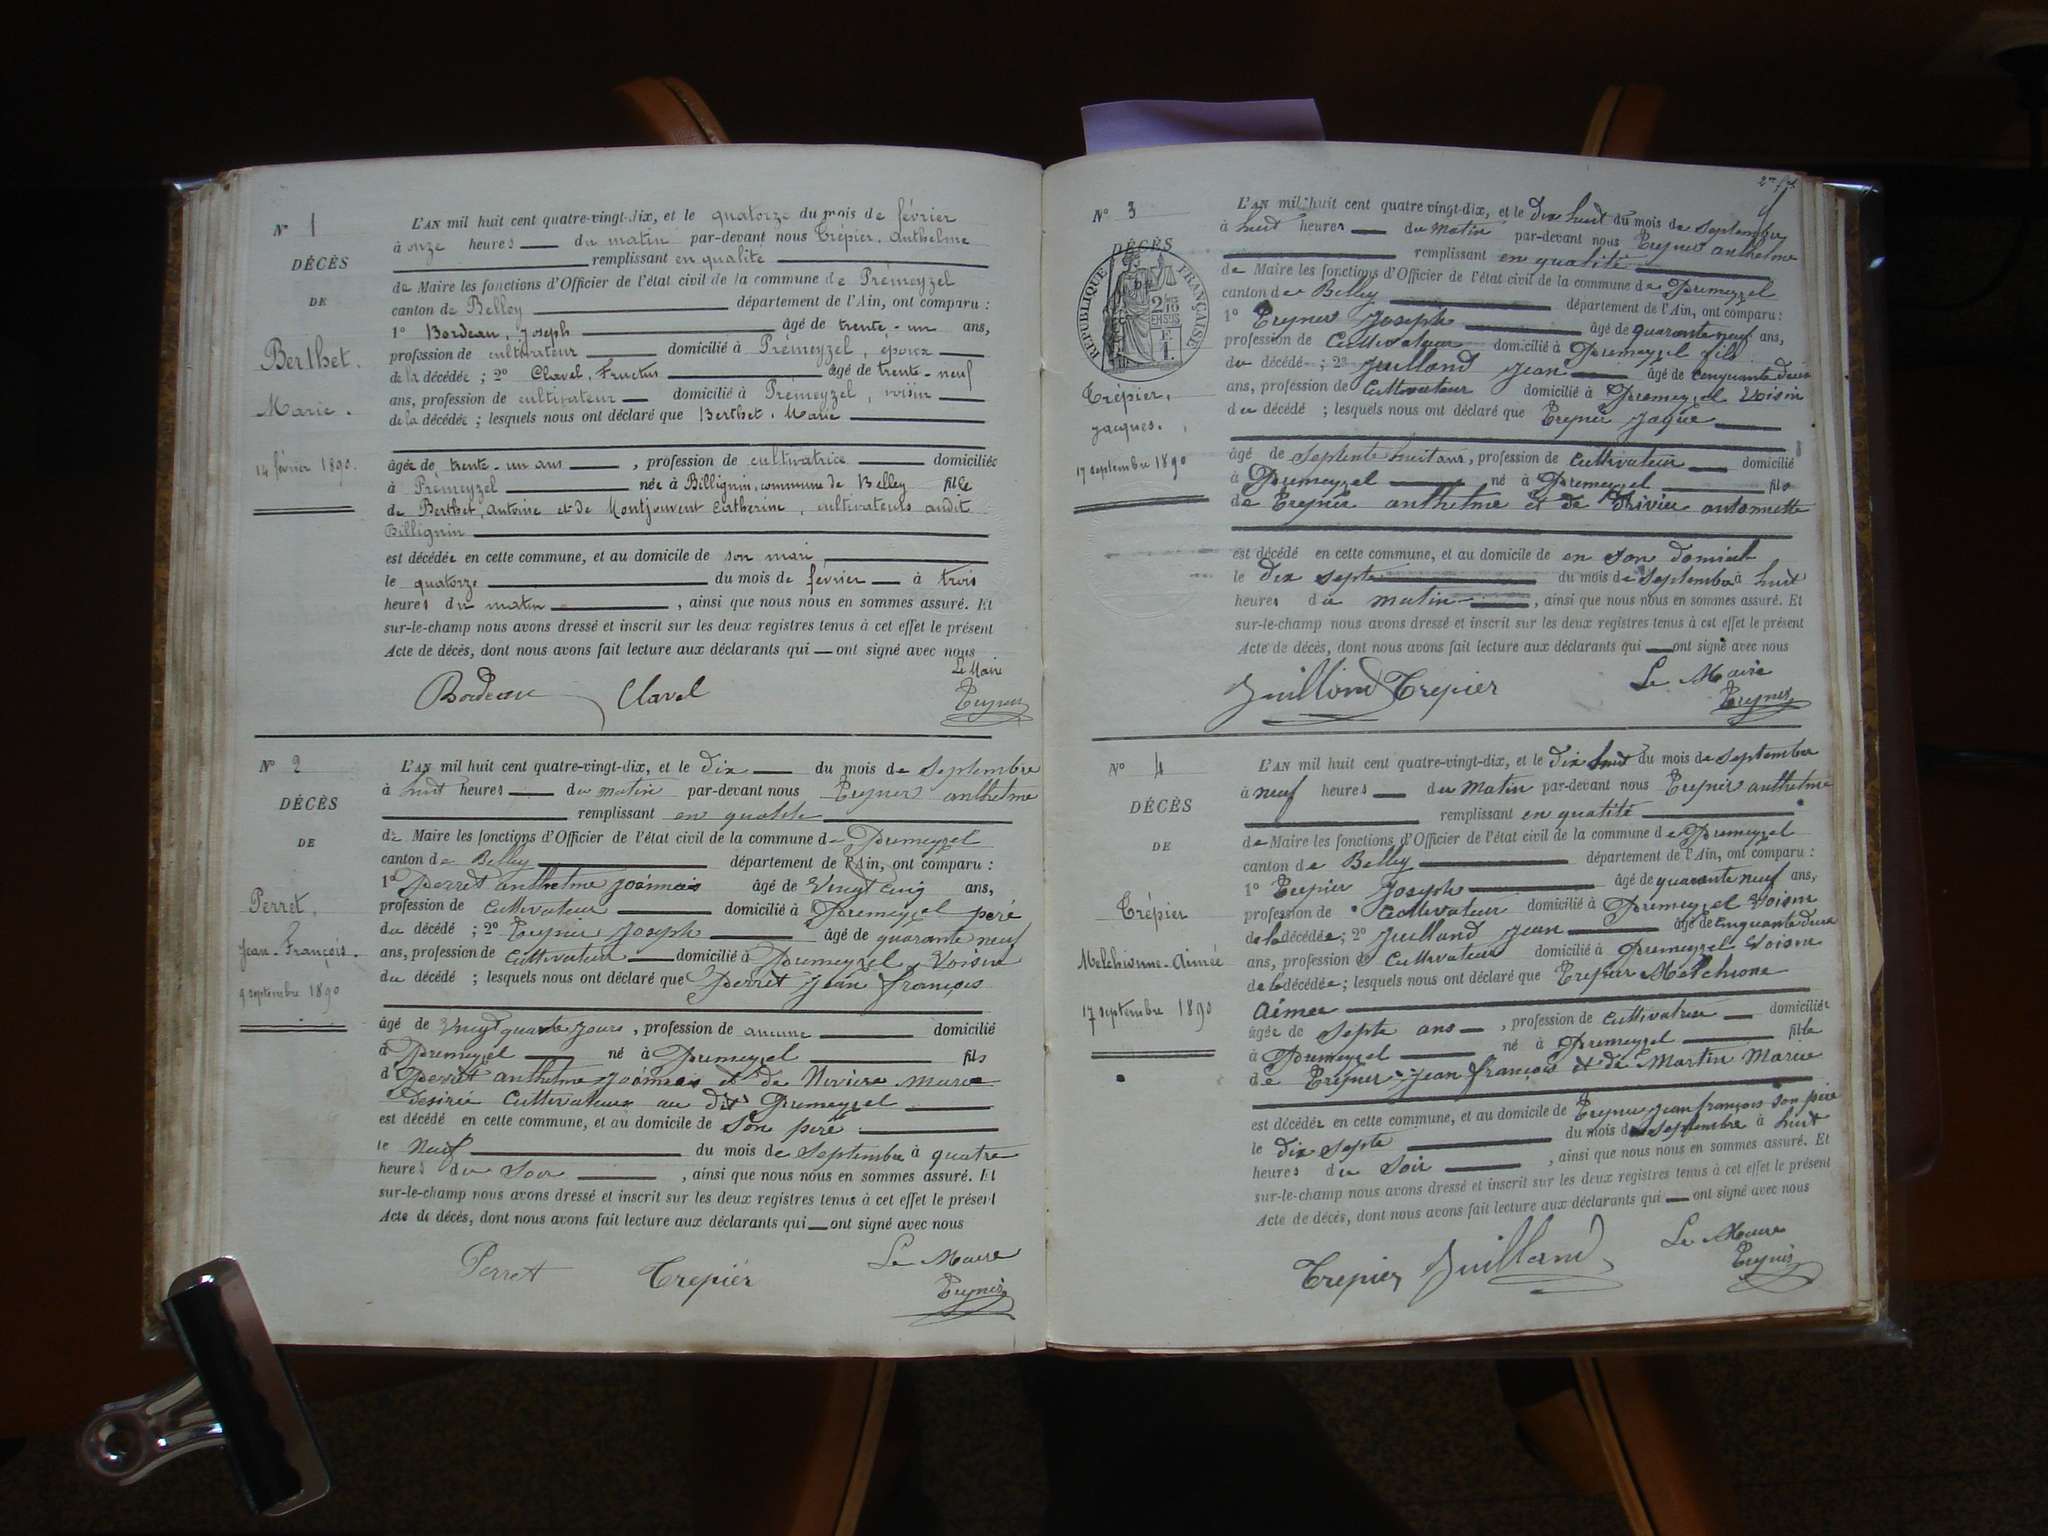 N° 1
DÉCÈS
DE
Berthet.
Marie.
14 février 1890.
L'AN mil huit cent quatre-vingt-dix, et le quatorze du mois de février
à onze heures du matin par-devant nous Trépier, Anthelme
remplissant en qualité
de Maire les fonctions d'Officier de l'état civil de la commune de Prémeyzel
canton de Belley département de l'Ain, ont comparu :
1° Bordeau, Joseph âgé de trente-un ans,
profession de cultivateur domicilié à Prémeyzel, époux
de la décédée ; 2° Clavel, Fructus âgé de trente-neuf
ans, profession de cultivateur domicilié à Prémeyzel, voisin
de la décédée ; lesquels nous ont déclaré que Berthet, Marie
âgée de trente-un ans , profession de cultivatrice domiciliée
à Prémeyzel née à Billignin, commune de Belley fille
de Berthet, Antoine et de Montjouvent Catherine, cultivateurs audit
Billignin
est décédée en cette commune, et au domicile de son mari
le quatorze du mois de février à trois
heures du matin , ainsi que nous nous en sommes assuré. Et
sur-le-champ nous avons dressé et inscrit sur les deux registres tenus à cet effet le présent
Acte de décès, dont nous avons fait lecture aux déclarants qui ont signé avec nous
Le Maire
Bordeau Clavel Trépier
N° 2
DÉCÈS
DE
Perret.
Jean-François.
9 septembre 1890
L'AN mil huit cent quatre-vingt-dix, et le dix du mois de septembre
à huit heures du matin par-devant nous Trepier anthelme
remplissant en qualité
de Maire les fonctions d'Officier de l'état civil de la commune de Premeyzel
canton de Belley département de l'Ain, ont comparu :
1° Perret anthelme joannais âgé de vingt cinq ans,
profession de cultivateur domicilié à Premeyzel peré
du décédé ; 2° Trepier Joseph âgé de quarante neuf
ans, profession de cultivateur domicilié à Premeyzel, voisin
du décédé ; lesquels nous ont déclaré que Perret jean françois
âgé de vingt quatre jours , profession de aucune domicilié
à Premeyzel né à Premeyzel fils
d Perret anthelme joannais et de marie
desirée cultivateurs au dit Premeyzel
est décédé en cette commune, et au domicile de son peré
le neuf du mois de septembre à quatre
heures du soir , ainsi que nous nous en sommes assuré. Et
sur-le-champ nous avons dressé et inscrit sur les deux registres tenus à cet effet le présent
Acte de décès, dont nous avons fait lecture aux déclarants qui ont signé avec nous
Perret Trepiér Le Maire
Trepier
N° 3
DÉCÈS
RÉPUBLIQUE FRANÇAISE
Trépier,
Jacques.
17 septembre 1890
L'AN mil huit cent quatre-vingt-dix, et le dix huit du mois de septembre
à huit heures du matin par-devant nous Trepier anthelme
remplissant en qualité
de Maire les fonctions d'Officier de l'état civil de la commune de Premeyzel
canton de Belley département de l'Ain, ont comparu :
1° Trepier Joseph âgé de quarante neuf ans,
profession de cultivateur domicilié à Premeyzel fils
du décédé ; 2° Juilland Jean âgé de cinquante deux
ans, profession de cultivateur domicilié à Premeyzel voisin
du décédé ; lesquels nous ont déclaré que Trepier Jaque
âgé de septente huit ans, profession de cultivateur domicilié
à Premeyzel né à Premeyzel fils
de Trepier anthelme et de antoinette
est décédé en cette commune, et au domicile de en son domicile
le dix septe du mois de septembre à huit
heures du matin , ainsi que nous nous en sommes assuré. Et
sur-le-champ nous avons dressé et inscrit sur les deux registres tenus à cet effet le présent
Acte de décès, dont nous avons fait lecture aux déclarants qui ont signé avec nous
Juilland Trepier Le Maire
Trepier
N° 4
DÉCÈS
DE
Trépier
Melchionne-Aimée
17 septembre 1890
L'AN mil huit cent quatre-vingt-dix, et le dix huit du mois de septembre
à neuf heures du matin par-devant nous Trepier anthelme
remplissant en qualité
de Maire les fonctions d'Officier de l'état civil de la commune de Premeyzel
canton de Belley département de l'Ain, ont comparu :
1° Trepier Joseph âgé de quarante neuf ans,
profession de cultivateur domicilié à Premeyzel voisin
de la décédée ; 2° Juilland Jean âgé de cinquante deux
ans, profession de cultivateur domicilié à Premeyzel voisin
de la décédée ; lesquels nous ont déclaré que Trepier Melchione
aimée
âgée de septe ans , profession de cultivatrice domiciliée
à Premeyzel né à Premeyzel fille
de Trepier jean françois et de Martin Marie
est décédée en cette commune, et au domicile de Trepier jean françois son peré
le dix septe du mois de septembre à huit
heures du soir , ainsi que nous nous en sommes assuré. Et
sur-le-champ nous avons dressé et inscrit sur les deux registres tenus à cet effet le présent
Acte de décès, dont nous avons fait lecture aux déclarants qui ont signé avec nous
Trepier Juilland Le Maire
Trepier